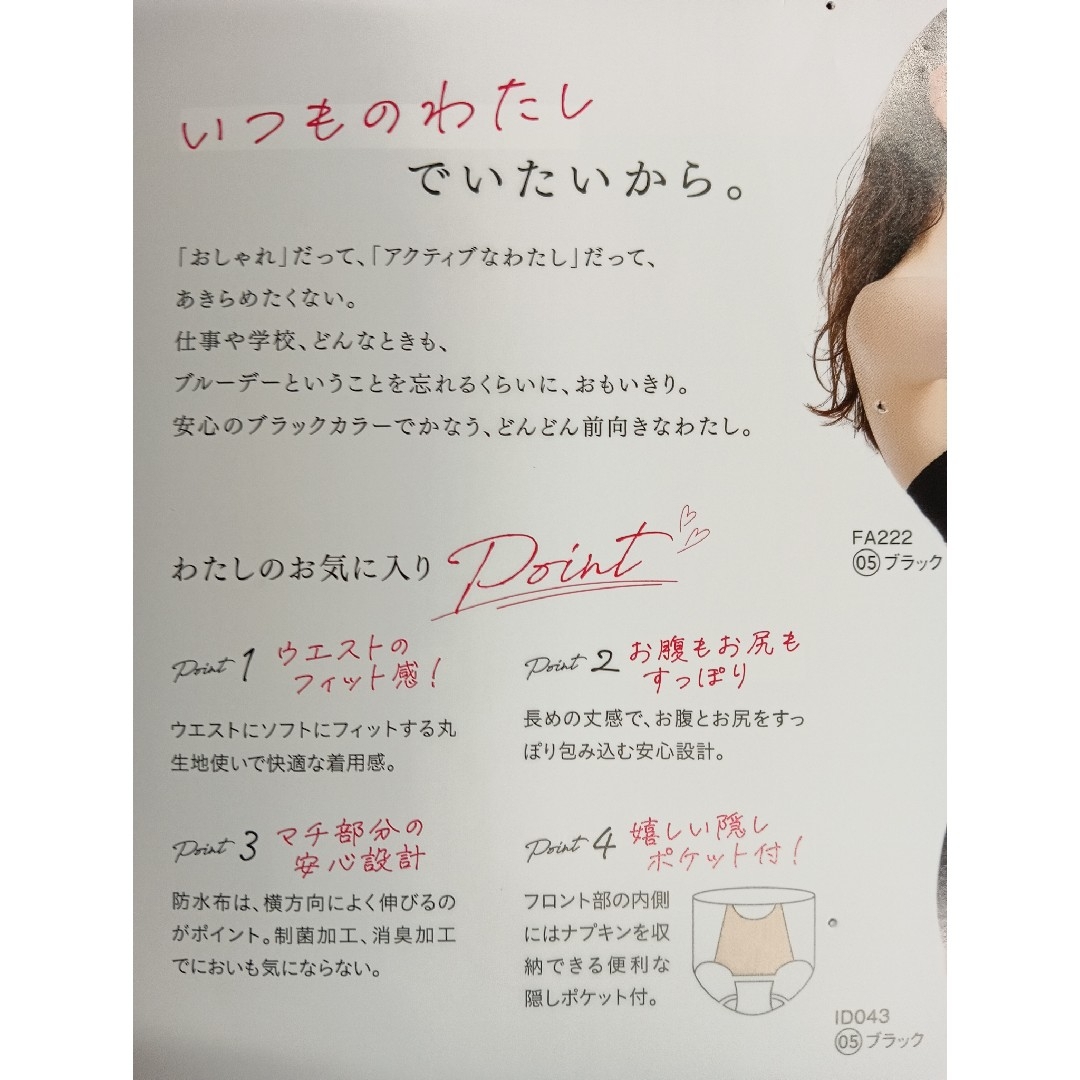 いつものわたし
でいたいから。
「おしゃれ」だって、「アクティブなわたし」だって、
あきらめたくない。
仕事や学校、どんなときも、
ブルーデーということを忘れるくらいに、おもいきり。
安心のブラックカラーでかなう、どんどん前向きなわたし。
わたしのお気に入り Point
Point 1 ウエストの
フィット感！
ウエストにソフトにフィットする丸
生地使いで快適な着用感。
Point 2 お腹もお尻も
すっぽり
長めの丈感で、お腹とお尻をすっ
ぽり包み込む安心設計。
Point 3 マチ部分の
安心設計
防水布は、横方向によく伸びるの
がポイント。制菌加工、消臭加工
でにおいも気にならない。
Point 4 嬉しい隠し
ポケット付！
フロント部の内側
にはナプキンを収
納できる便利な
隠しポケット付。
FA222
05 ブラック
ID043
05 ブラック